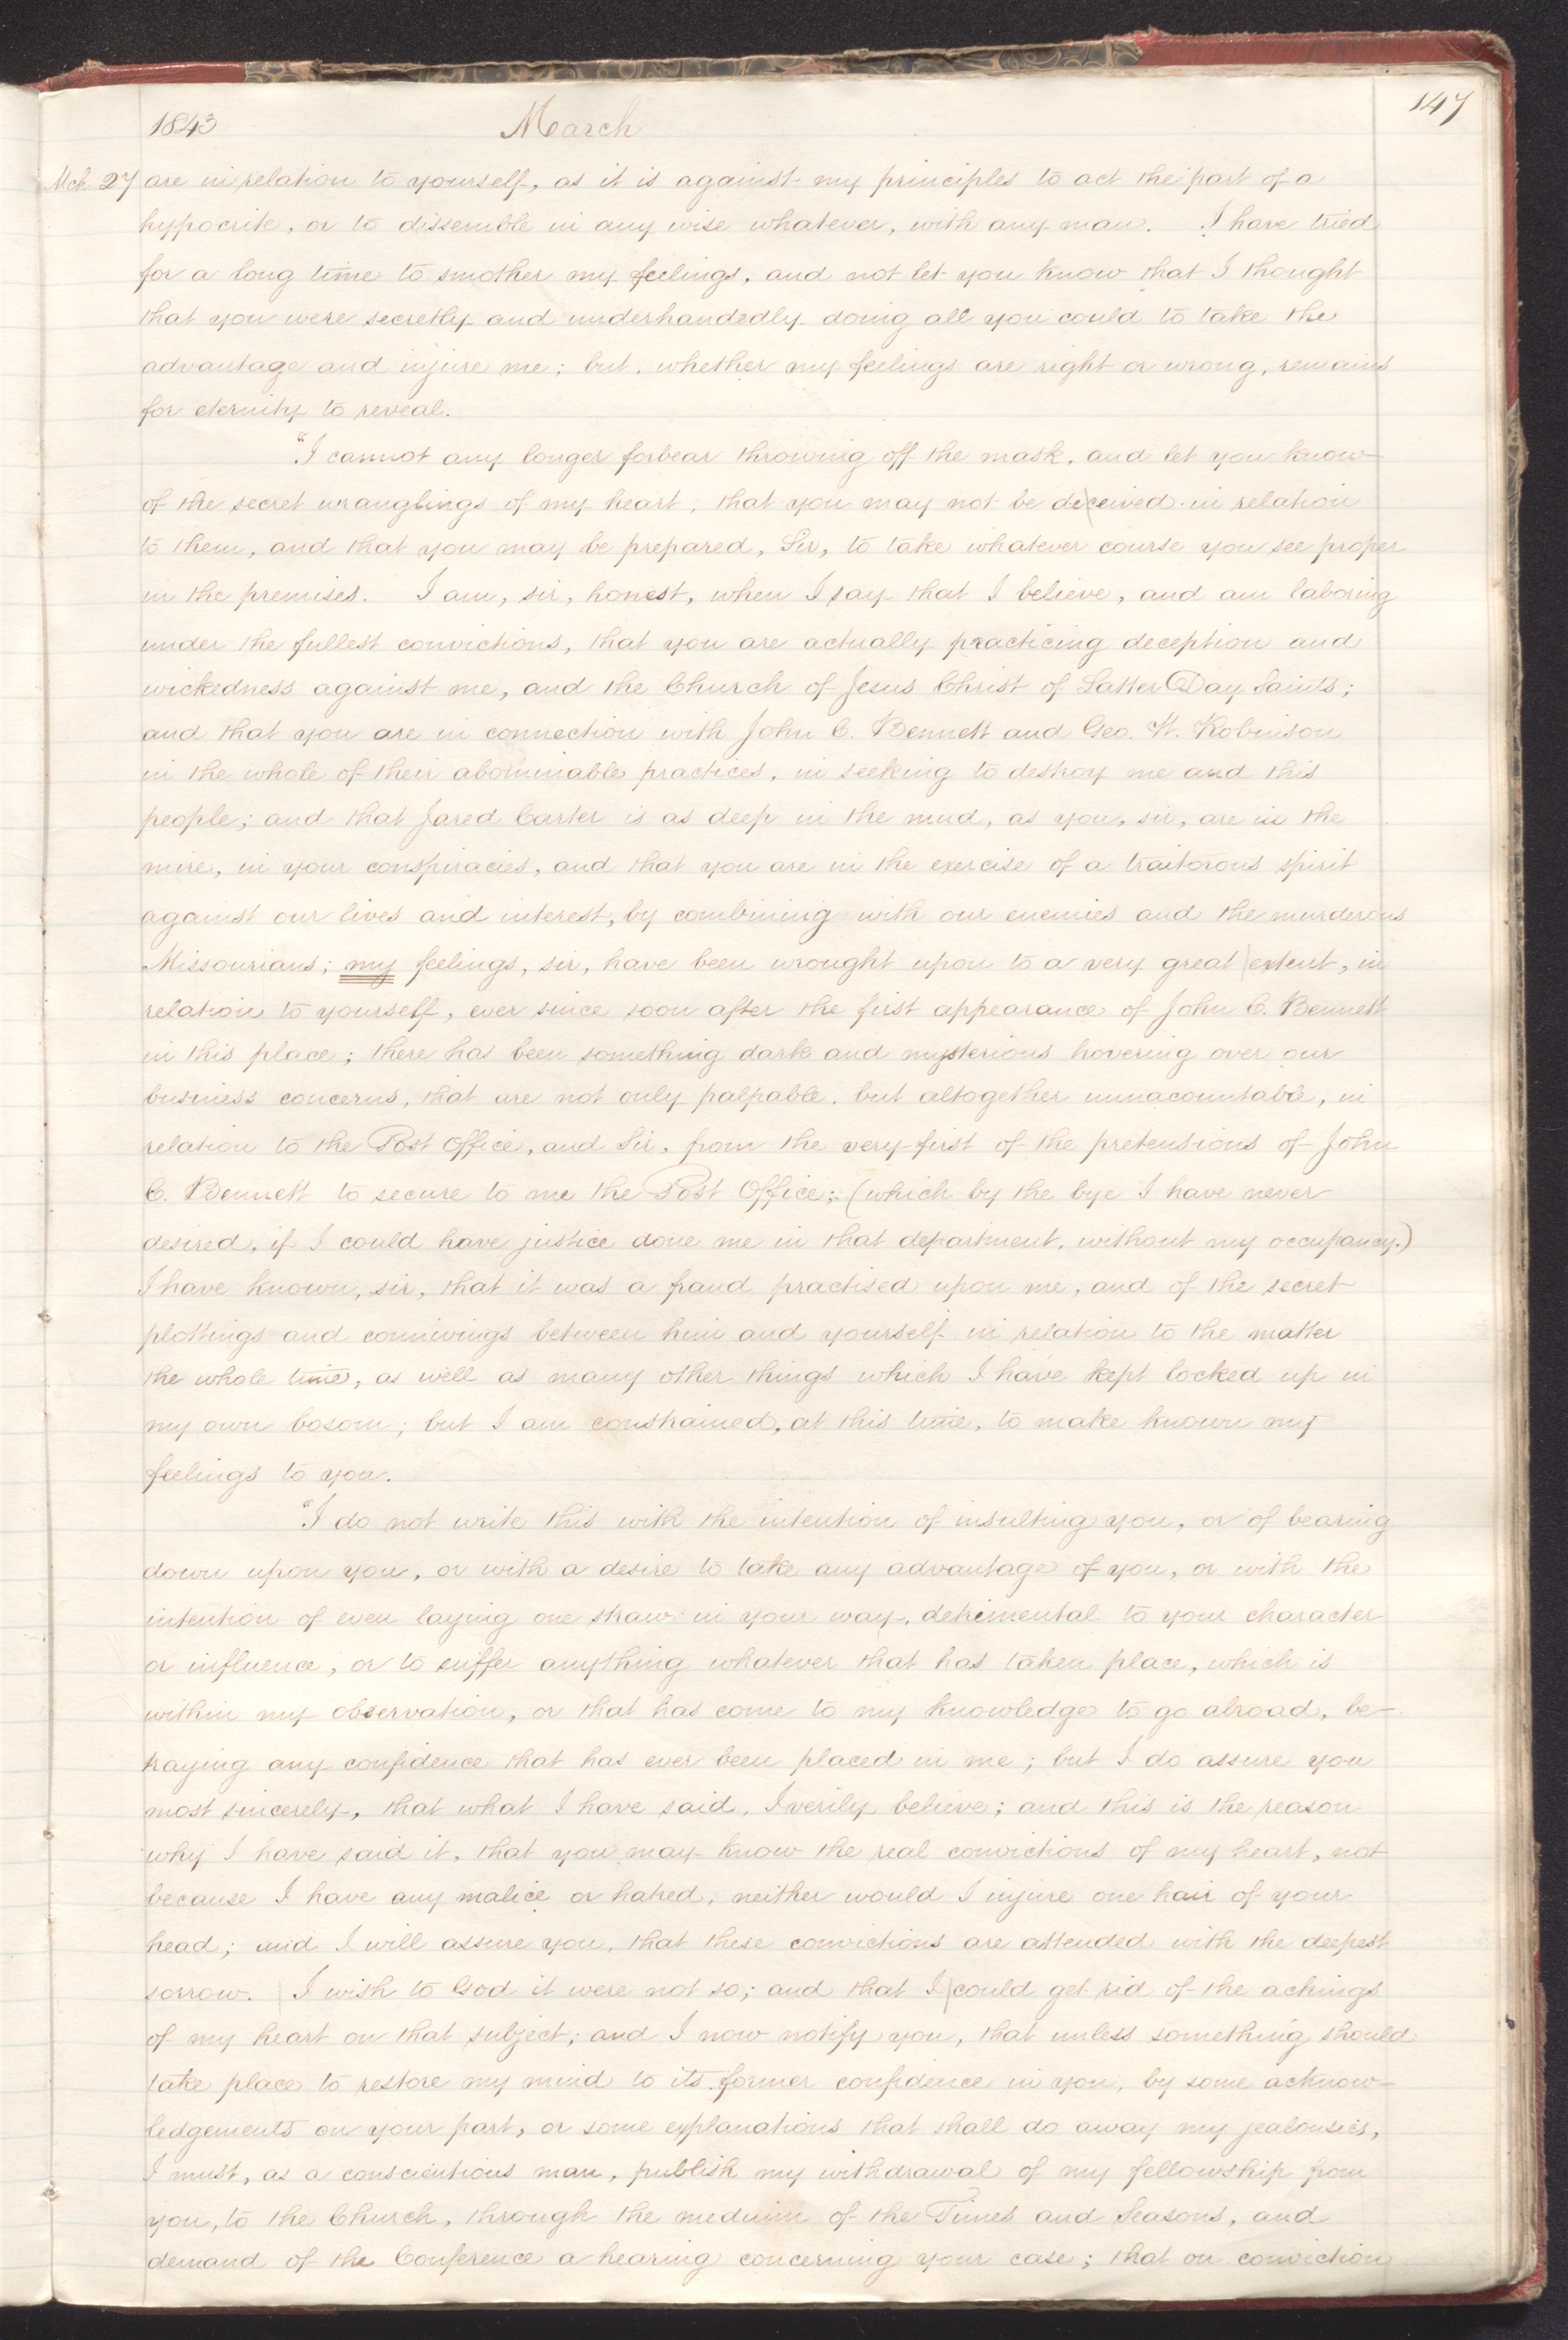 147
1843 March
Mch 27 are in relation to yourself, as it is against my principles to act the part of a
hypocrite, or to dissemble in any wise whatever, with any man. I have tried
for a long time to smother my feelings, and not let you know that I thought
that you were secretly and underhandedly doing all you could to take the
advantage and injure me; but, whether my feelings are right or wrong, remains
for eternity to reveal.
"I cannot any longer forbear throwing off the mask, and let you know
of the secret wranglings of my heart, that you may not be deceived in relation
to them, and that you may be prepared, Sir, to take whatever course you see proper
in the premises. I am, sir, honest, when I say that I believe, and am laboring
under the fullest convictions, that you are actually practicing deception and
wickedness against me, and the Church of Jesus Christ of Latter Day Saints;
and that you are in connection with John C. Bennett and Geo. W. Robinson
in the whole of their abominable practices, in seeking to destroy me and this
people; and that Jared Carter is as deep in the mud, as you, sir, are in the
mire, in your conspiracies, and that you are in the exercise of a traitorous spirit
against our lives and interest, by combining with our enemies and the murderous
Missourians; my feelings, sir, have been wrought upon to a very great extent, in
relation to yourself, ever since soon after the first appearance of John C. Bennett
in this place; there has been something dark and mysterious hovering over our
business concerns, that are not only palpable, but altogether unnacountable, in
relation to the Post Office, and Sir, from the very first of the pretensions of John
C. Bennett to secure to me the Post Office; (which by the bye I have never
desired, if I could have justice done me in that department, without my occupancy.)
I have known, sir, that it was a fraud practised upon me, and of the secret
plottings and connivings between him and yourself in relation to the matter
the whole time, as well as many other things which I have kept locked up in
my own bosom; but I am constrained, at this time, to make known my
feelings to you.
"I do not write this with the intention of insulting you, or of bearing
down upon you, or with a desire to take any advantage of you, or with the
intention of even laying one straw in your way, detrimental to your character
or influence, or to suffer anything whatever that has taken place, which is
within my observation, or that has come to my knowledge to go abroad, be-
traying any confidence that has ever been placed in me; but I do assure you
most sincerely, that what I have said, I verily believe; and this is the reason
why I have said it, that you may know the real convictions of my heart, not
because I have any malice or hatred, neither would I injure one hair of your
head; and I will assure you, that these convictions are attended with the deepest
sorrow. I wish to God it were not so; and that I could get rid of the achings
of my heart on that subject; and I now notify you, that unless something should
take place to restore my mind to its former confidence in you, by some acknow-
ledgements on your part, or some explanations that shall do away my jealousies,
I must, as a conscientious man, publish my withdrawal of my fellowship from
you, to the Church, through the medium of the Times and Seasons, and
demand of the Conference a hearing concerning your case; that on conviction